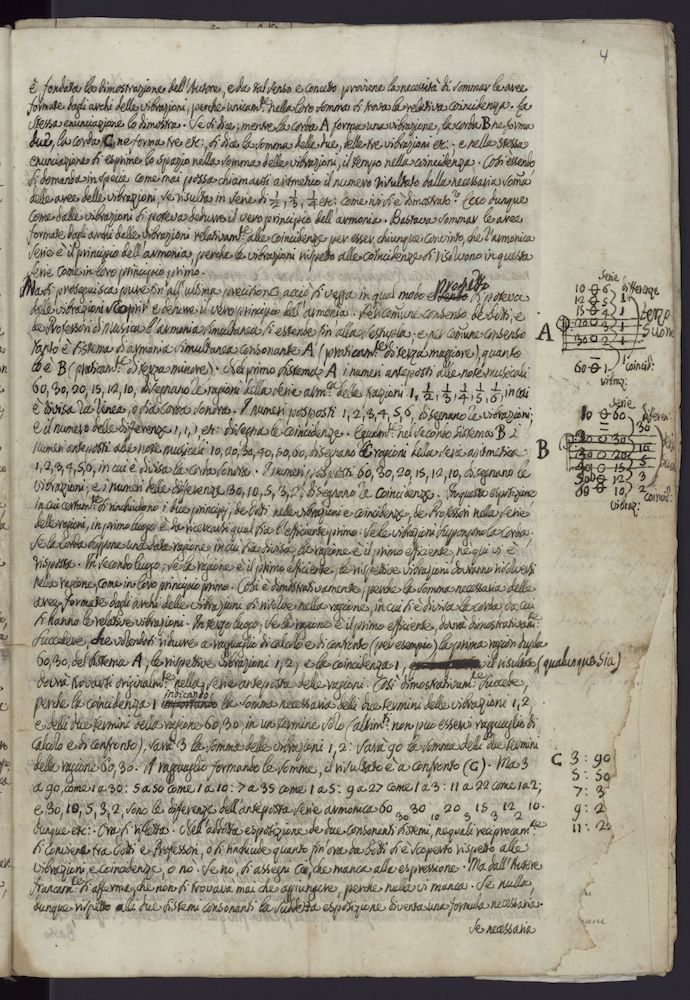 4
è fondata la dimostrazione dell'Autore, e da tal senso e concetto proviene la necessità di sommar le aree
formate dagli archi delle vibrazioni, perche unicam.te nella loro somma si trova la relativa coincidenza. La
stessa enunciazione lo dimostra. Se si dice, mentre la corda A forma una vibrazione, la corda B ne forma
due, la corda C ne forma tre etc: si dice la somma delle due, delle tre vibrazioni etc: e nella stessa
enunciazione si esprime lo spazio nella somma delle vibrazioni, il tempo nella coincidenza. Così essendo
si domanda in specie come mai possa chiamarsi aritmetico il numero risultato dalla necessaria somma
delle aree delle vibrazioni, se risulta in serie di 1/2, 1/3, 1/4 etc: come ivi si è dimostrato? Ecco dunque
come dalle vibrazioni si poteva dedurre il vero principio dell'armonia. Bastava sommar le aree
formate dagli archi delle vibrazioni relativam.te alle coincidenze per esser chiunque convinto, che l'armonica
serie è il principio dell'armonia, perche le vibrazioni rispetto alle coincidenze si risolvono in questa
serie come in loro principio primo.
Ma si proseguisca pure fin all'ultima precisione, acciò si vegga in qual modo si poteva
dalle vibrazioni scoprir e dedurre il vero principio dell'armonia. Per comune consenso de Dotti, e
de Professori di Musica l'armonia simultanea si estende sin alla sestupla; e per comune consenso
tanto è sistema di armonia simultanea consonante A (praticam.te di terza maggiore), quanto
lo è B (praticam.te di terza minore). Nel primo sistema A i numeri anteposti alle note musicali
60, 30, 20, 15, 12, 10, disegnano le ragioni della serie arm.ca delle frazioni 1, 1/2, 1/3, 1/4, 1/5, 1/6, in cui
è divisa la linea, o sia corda sonora. I numeri posposti 1, 2, 3, 4, 5, 6, disegnano le vibrazioni;
e il numero delle differenze 1, 1, 1, etc: disegna le coincidenze. Egualm.te nel secondo sistema B i
numeri anteposti alle note musicali 10, 20, 30, 40, 50, 60, disegnano le ragioni della serie aritmetica
1, 2, 3, 4, 5, 6, in cui è divisa la corda sonora. I numeri posposti 60, 30, 20, 15, 12, 10, disegnano le
vibrazioni, e i numeri delle differenze 30, 10, 5, 3, 2, disegnano le coincidenze. In questa esposizione
in cui certam.te si rinchiudono i due principj, de Dotti nelle vibrazioni e coincidenze, de Professori nella serie
delle ragioni, in primo luogo è da ricercarsi qual sia l'efficiente primo. Se le vibrazioni suppongono la corda.
Se la corda suppone una data ragione in cui sia divisa, la ragione è il primo efficiente, nè qui vi è
risposta. In secondo luogo, se la ragione è il primo efficiente, le rispettive vibrazioni dovranno risolversi
nella ragione, come in loro principio primo. Così è dimostrativamente, perche la somma necessaria delle
aree, formate dagli archi delle vibrazioni si risolve nella ragione, in cui si è divisa la corda, da cui
si hanno le relative vibrazioni. In terzo luogo, se la ragione è il primo efficiente, dovrà dimostrativam.te
succedere, che volendosi ridurre a ragguaglio di calcolo e di confronto (per esempio) la prima ragion dupla
60, 30, del sistema A, le rispettive vibrazioni 1, 2, e la coincidenza 1, il risultato (qualunque sia)
dovrà trovarsi originalm.te nella serie anteposta delle ragioni. Così dimostrativam.te succede,
perche la coincidenza 1 indicando la somma necessaria delli due termini delle vibrazioni 1, 2,
e delli due termini della ragione 60, 30, in un termine solo (altrim.ti non può esservi ragguaglio di
calcolo e di confronto), sarà 3 la somma delle vibrazioni 1, 2: sarà 90 la somma delli due termini
della ragione 60, 30. Il ragguaglio formando le somme, il risultato è a confronto (C). Ma 3
a 90, come 1 a 30: 5 a 50 come 1 a 10: 7 a 35 come 1 a 5: 9 a 27 come 1 a 3: 11 a 22 come 1 a 2;
e 30, 10, 5, 3, 2, sono le differenze dell'anteposta serie armonica 60 30 20 15 12 10.
30 10 5 3 2
Dunque etc: Ora si rifletta. Nell'addotta esposizione de due consonanti sistemi, ne quali reciprocam.te
si conviene tra Dotti e Professori, o si rinchiude quanto fin'ora da Dotti si è scoperto rispetto alle
vibrazioni e coincidenze, o nò. Se nò, si assegni ciò, che manca alla espressione. Ma dall'Autore
francam.te si afferma, che non si trovava mai che aggiungere, perche nulla vi manca. Se nulla,
dunque rispetto alli due sistemi consonanti la suddetta esposizione diventa una formula necessaria.
Se necessaria
Serie
differenze
10 6
12 5 1
15 4 1
20 3 1
30 2 1
60 1 1
terzo
suono
A
coincid:
vibraz:
serie
10 60
30
B
coincid:
vibraz:
C 3 : 90
5 : 50
7 : 3
9 : 2
11 : 2